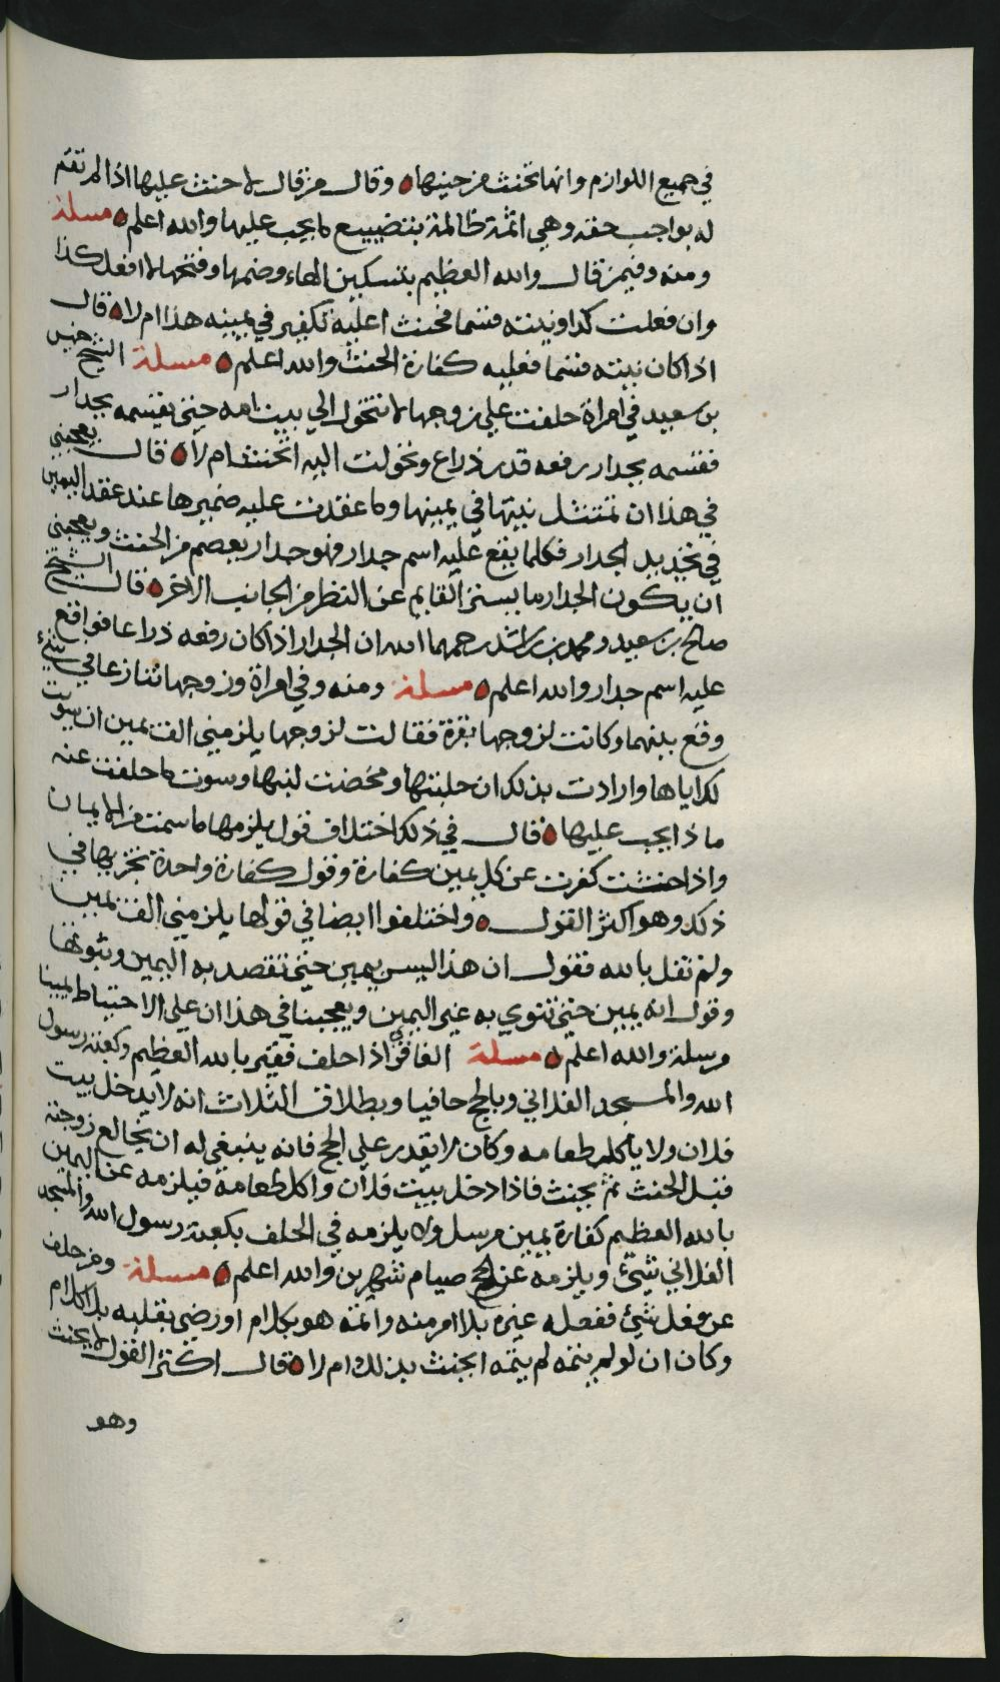 في جميع اللوازم وانها تحنث من حينها ه وقال من قال لا حنث عليها اذا لم تقم
له بواجب حقه وهي اثمة ظالمة بتضييع ما يجب عليها والله اعلم ه مسلة
ومنه وفيمن قال والله العظيم بتسكين الهاء وضمها وفتحها لا افعل كذا
وان فعلت كذا ونيته قسما فحنث اعليه تكفير في يمينه هذا ام لا ه قال
اذا كان نيته قسما فعليه كفارة الحنث والله اعلم ه مسلة الشيخ خميس
بن سعيد في امراة حلفت علي زوجها لا تتحول الي بيت امه حتى يقسمه بجدار
فقسمه بجدار رفعه قدر ذراع وتحولت اليه اتحنث ام لا ه قال يعجبني
في هذا ان تمتثل نيتها في يمينها وما عقدت عليه ضميرها عند عقد اليمين
في تحديد الجدار فكلما يقع عليه اسم جدار فهو جدار يعصم من الحنث ويعجبني
ان يكون الجدار ما يستر القايم عن النظر من الجانب الاخر ه قال الشيخ
صالح بن سعيد ومحمد بن راشد رحمهما الله ان الجدار اذا كان رفعه ذراعا فواقع
عليه اسم جدار والله اعلم ه مسلة ومنه وفي امراة وزوجها تنازعا في شيء
وقع بينهما وكانت لزوجها بقرة فقالت لزوجها يلزمني الف يمين ان سويت
لك اياها وارادت بذلك ان حلبتها ومخضت لبنها وسوت ما حلفت عنه
ماذا يجب عليها ه قال في ذلك اختلاف قول يلزمها ما سمت من الايمان
واذا حنثت كفرت عن كل يمين كفارة وقول كفارة واحدة تجزيها في
ذلك وهو اكثر القول ه واختلفوا ايضا في قولها يلزمني الف يمين
ولم تقل بالله فقول ان هذا ليس بيمين حتى تقصد به اليمين وثبوتها
وقول انه يمين حتى تنوي به غير اليمين ويعجبنا في هذا ان علي الاحتياط يمينا
مرسلة والله اعلم ه مسلة الغافري اذا حلف فقير بالله العظيم وكعبة رسول
الله والمسجد الفلاني وبالحج حافيا وبطلاق الثلاث انه لا يدخل بيت
فلان ولا ياكل طعامه وكان لا يقدر علي الحج فانه ينبغي له ان يخالع زوجته
قبل الحنث ثم يحنث فاذا دخل بيت فلان واكل طعامه فيلزمه عن اليمين
بالله العظيم كفارة يمين مرسل ولا يلزمه في الحلف بكعبة رسول الله والمسجد
الفلاني شيئ ويلزمه عن الحج صيام شهرين والله اعلم ه مسلة ومن حلف
عن فعل شيئ ففعله غيره بلا امر منه واتمه هو بكلام او رضي بقلبه بلا كلام
وكان ان لو لم يتمه لم يتمه ايحنث بذلك ام لا ه قال اكثر القول لا يحنث
وهو